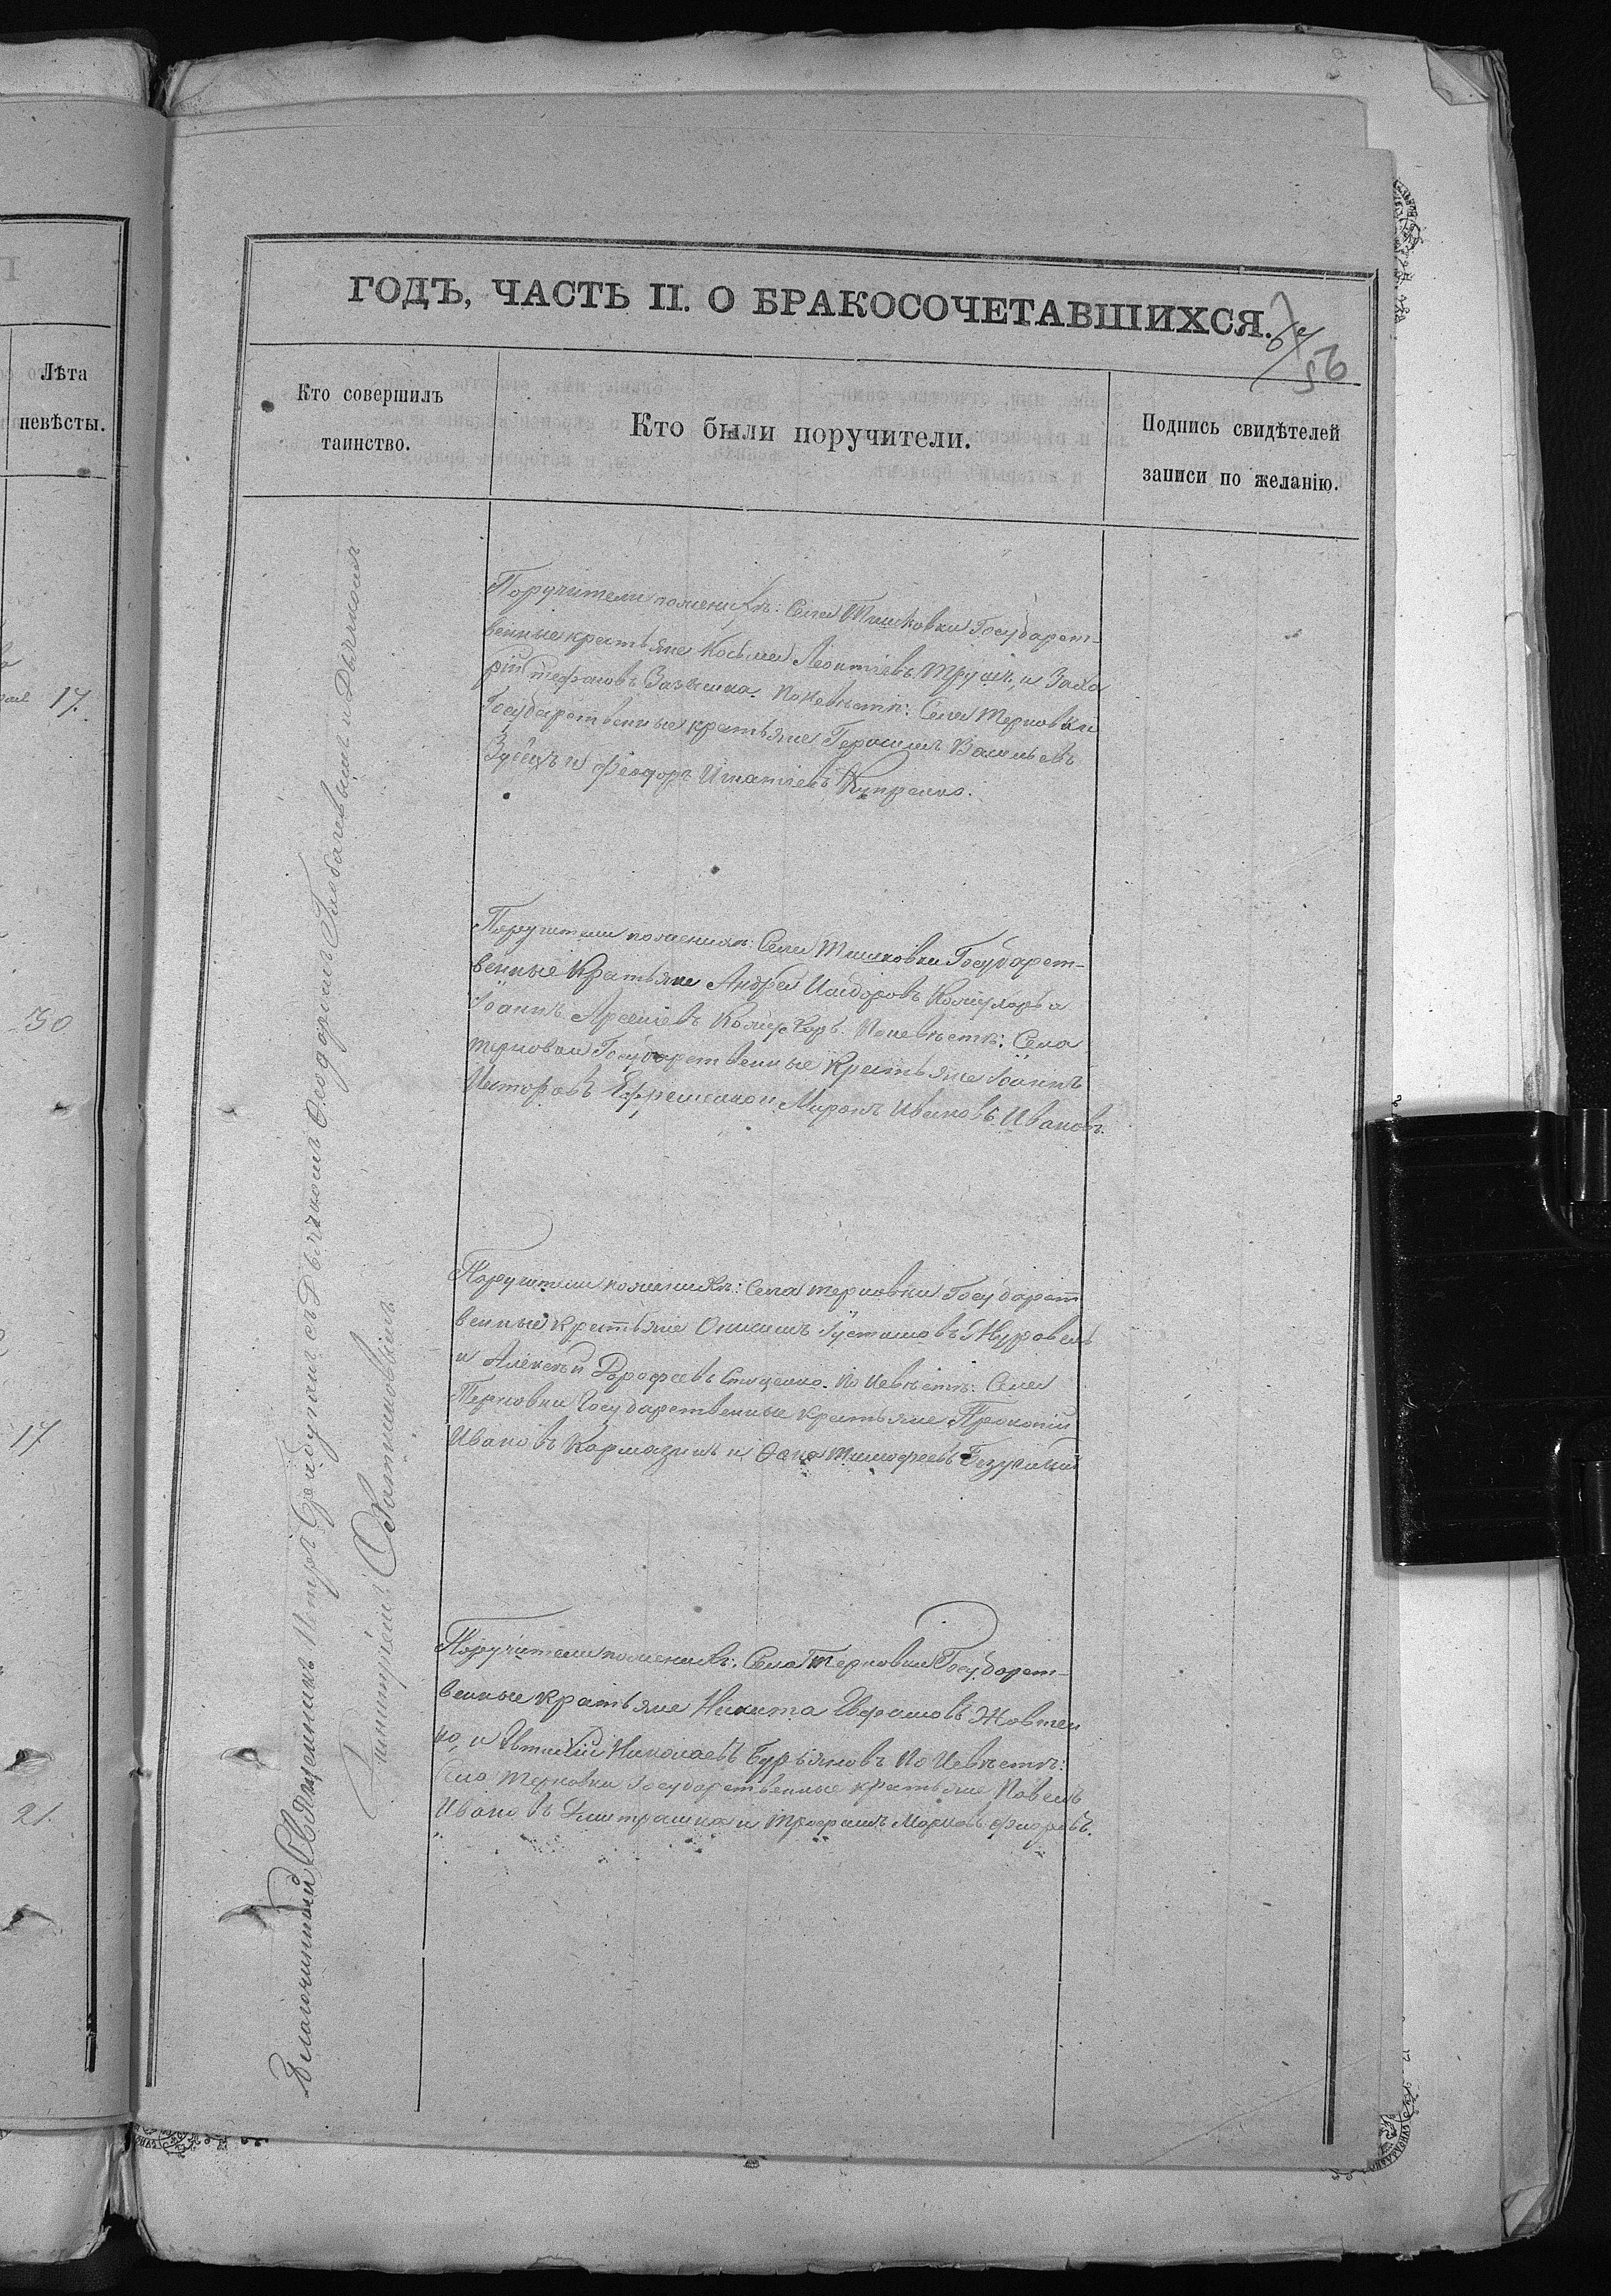 Лѣта
невѣсты.
17.
30
17
21.
ГОДЪ, ЧАСТЬ II. О БРАКОСОЧЕТАВШИХСЯ.
56
Кто совершилъ
таинство.
Кто были поручители.
Подпись свидѣтелей
записи по желанію.
Священникъ Петръ съ Дьячкомъ и Дьячкомъ
Димитріемъ
Поручители по женихѣ: Села Тишковки Государст-
венные крестьяне Косьма Леонтіевъ и Заха
рій Стефановъ По невѣстѣ: Села Терновки
Государственные крестьяне Герасимъ Васильевъ
Зубецъ и Феодоръ Игнатіевъ Купренко.
Поручители по женихѣ: Села Тишковки Государст-
венные Крестьяне Андрей Исидоровъ и
Іоаннъ Арсеніевъ По невѣстѣ: Села
Терновки Государственные Крестьяне Іоаннъ
Несторовъ Ефременко и Миронъ Ивановъ Ивановъ.
Поручители по женихѣ: Села Терновки Государст
венные крестьяне Онисимъ Журавель
и Алексѣй Дорофеевъ Стоценко. По невѣстѣ: Села
Терновки Государственные крестьяне Прокопій
Ивановъ Кармазинъ и Тимофеевъ
Поручители по женихѣ: Села Терновки Государст-
венные крестьяне Никита Жовтен
ко, и Николаевъ Бурьяновъ По невѣстѣ:
Села Терновки Государственные крестьяне Павелъ
Ивановъ Димитрашко и Трофимъ Марковъ